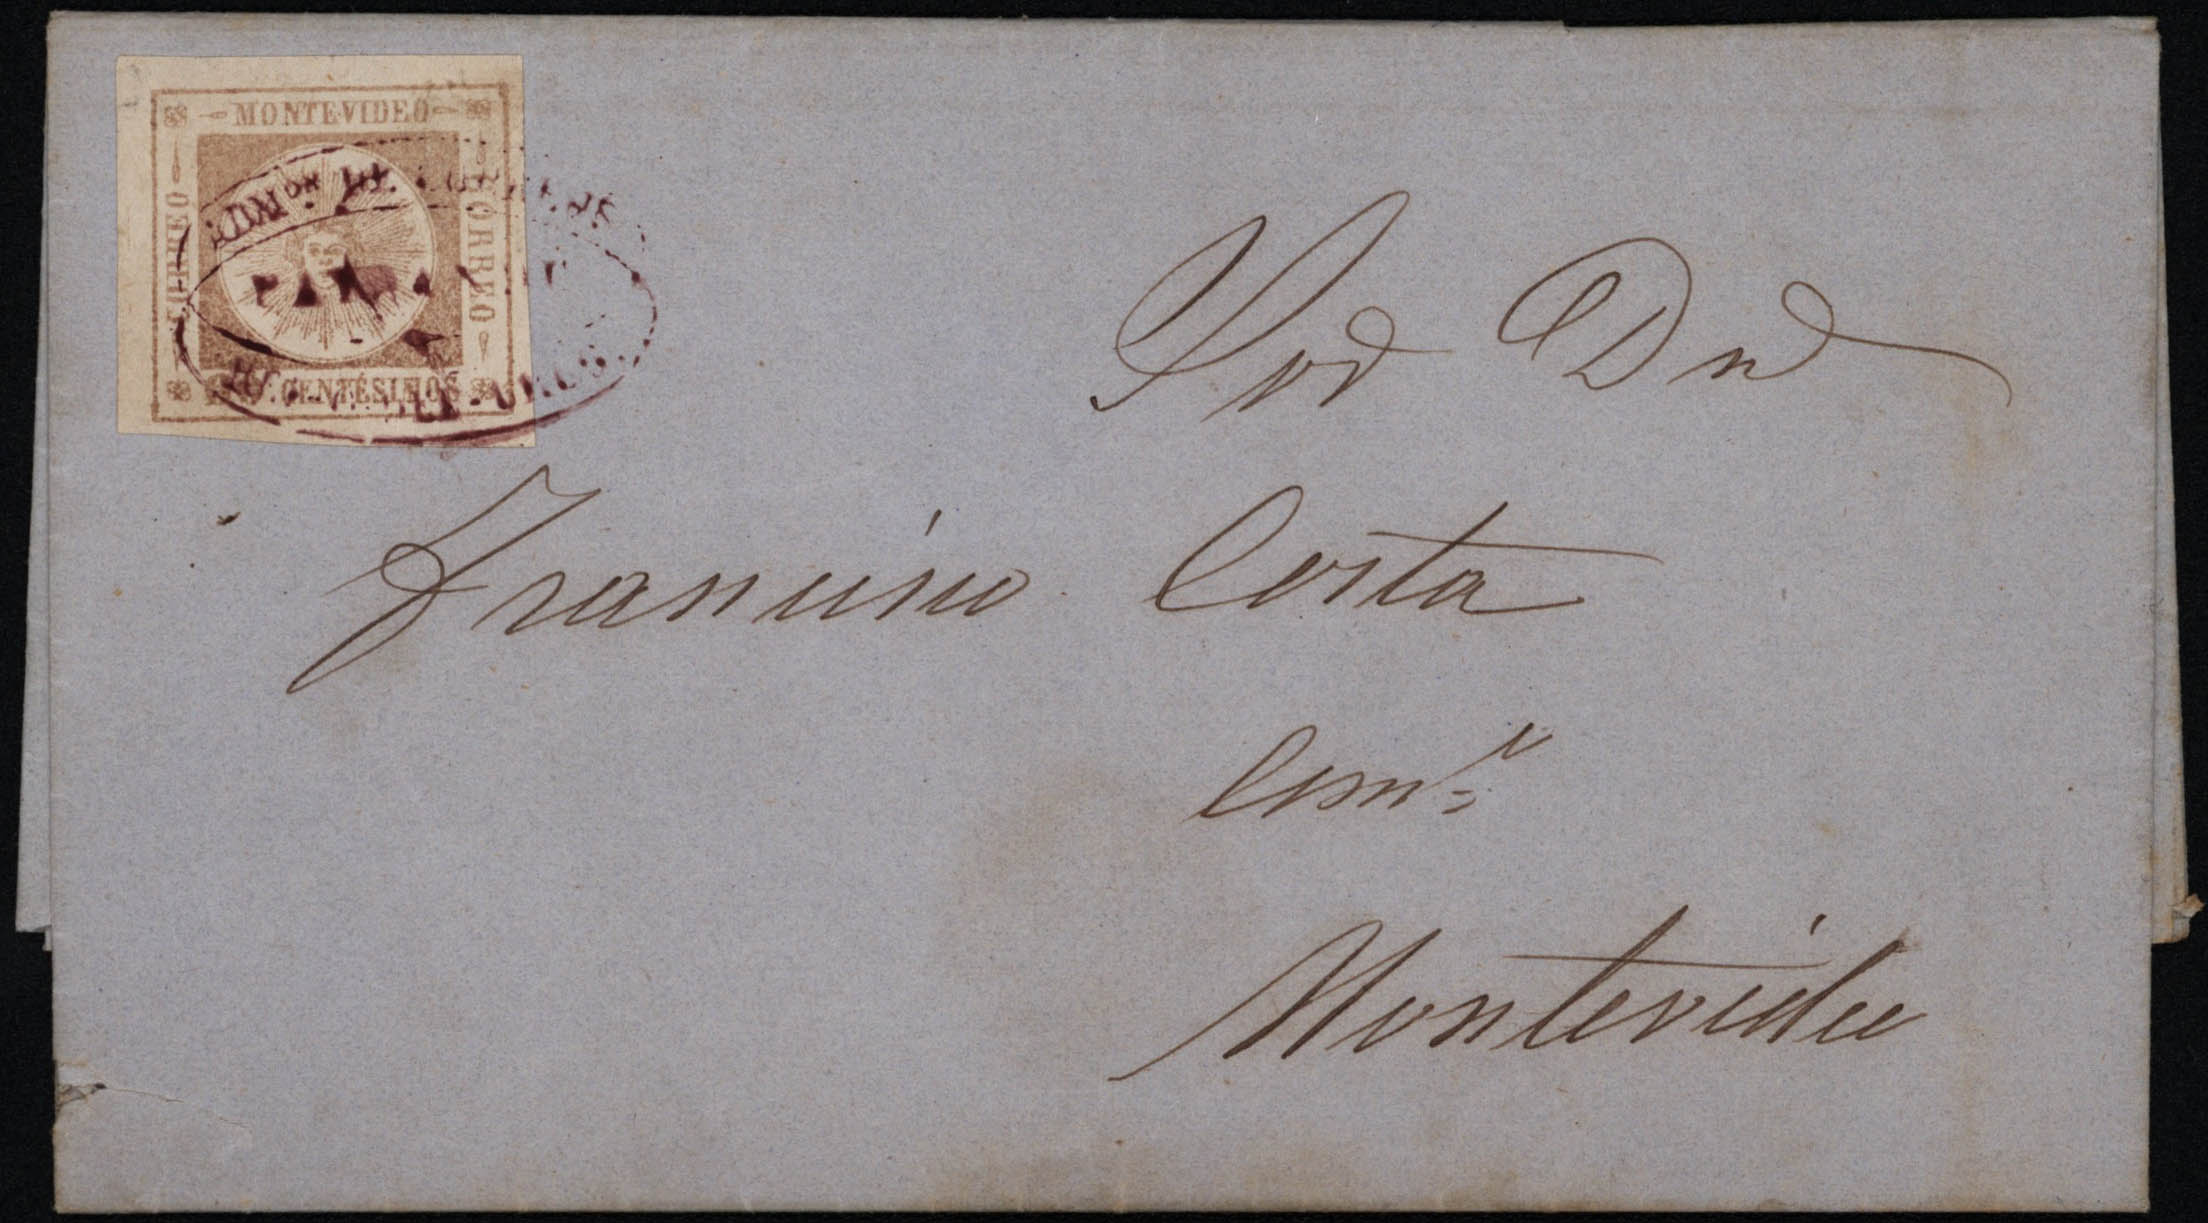 MONTEVIDEO
CORREO
CORREO
CENTÉSIMOS
ADMON DE
Sor Dn
Francisco Costa
Comº
Montevideo